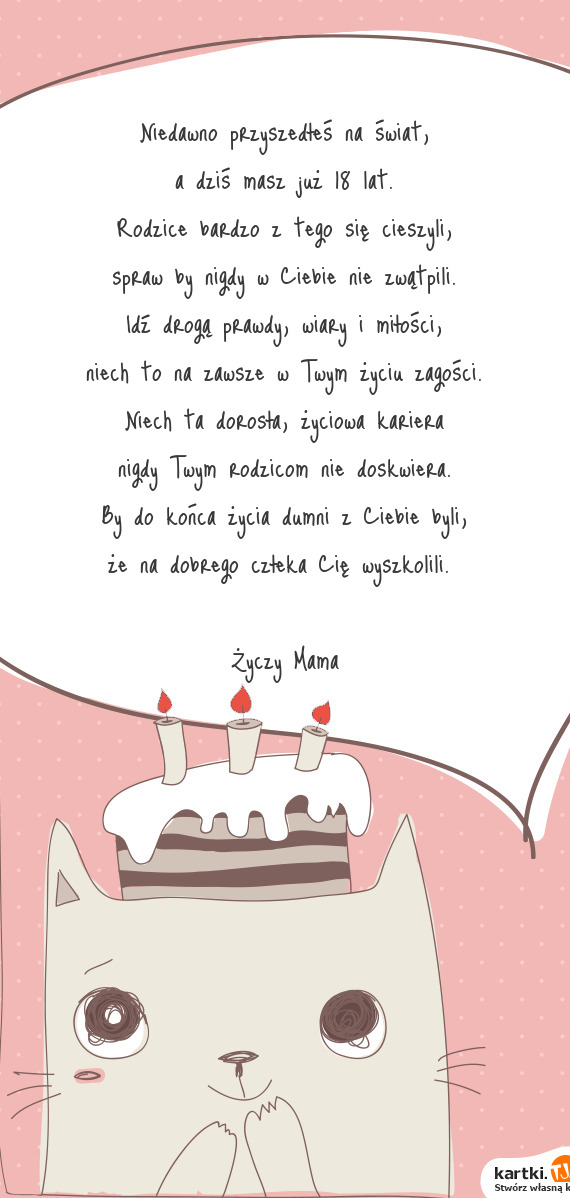 Niedawno przyszedłeś na świat,
a dziś masz już 18 lat.
Rodzice bardzo z tego się cieszyli,
spraw by nigdy w Ciebie nie zwątpili.
Idź drogą prawdy, wiary i miłości,
niech to na zawsze w Twym życiu zagości.
Niech ta dorosła, życiowa kariera
nigdy Twym rodzicom nie doskwiera.
By do końca życia dumni z Ciebie byli,
że na dobrego człeka Cię wyszkolili.
Życzy Mama
kartki.TJ
Stwórz własną k